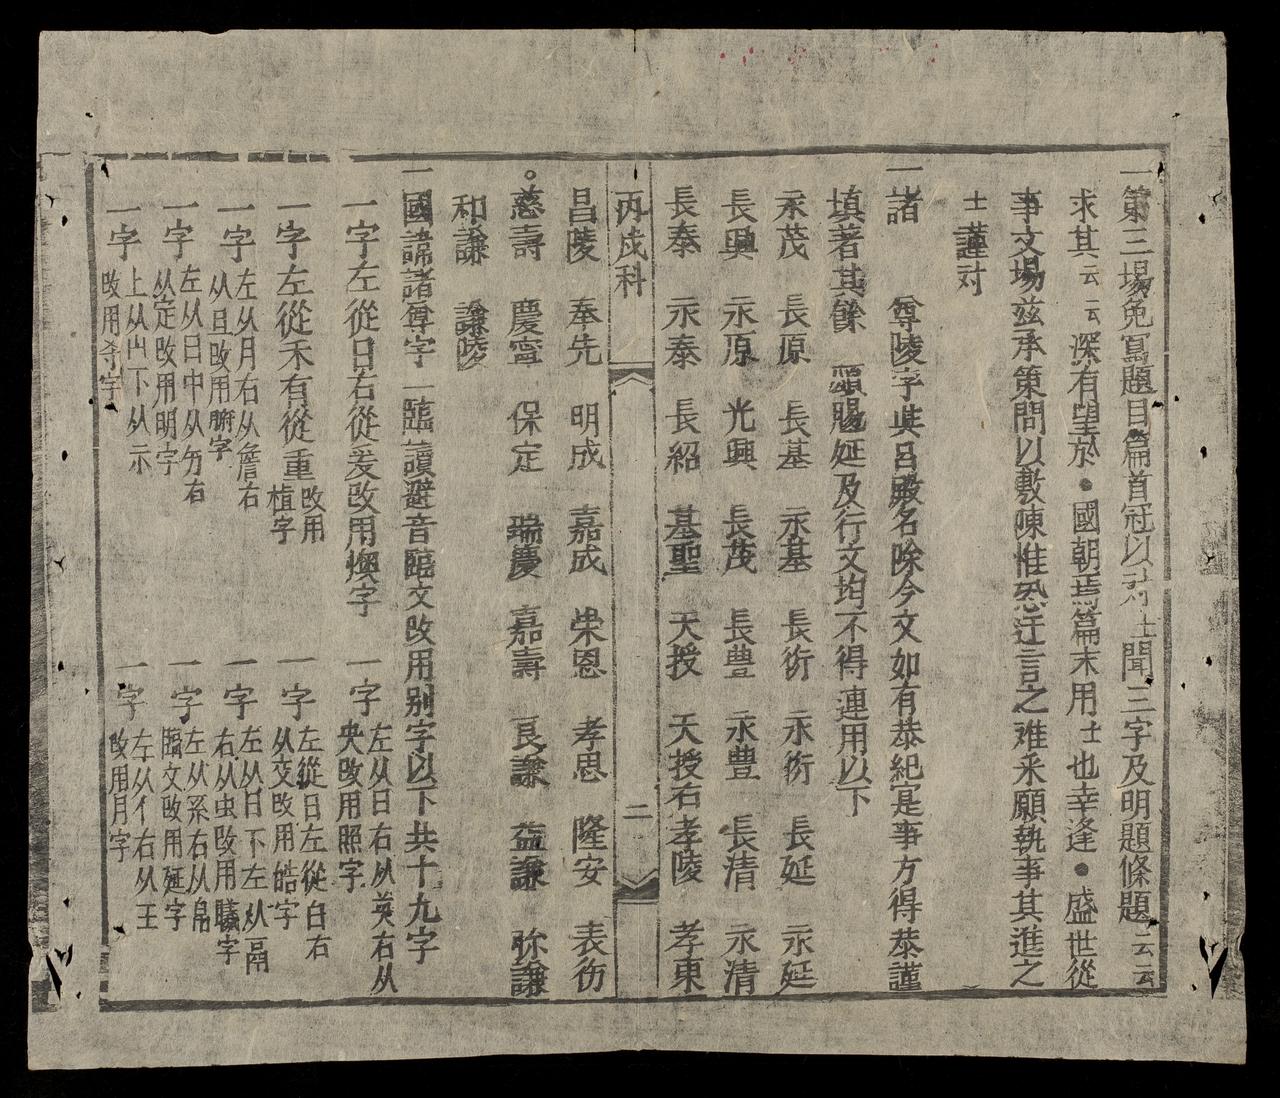 一第三場免冩題目篇首冠以对士聞三字及明題條題云云
求其云云深有望於●國朝焉篇末用士也幸逢●盛世從
事文場兹承策問以敷陳惟恐迂言之难釆願執事其進之
士謹对
一諸　尊陵字與呂殿名除今文如有恭紀寔事方得恭謹
填著其餘　頭賜延及行文均不得連用以下
永茂　長原　長基　永基　長衍　永衍　長延　永延
長興　永原　光興　長茂　長豊　永豊　長清　永清
長泰　永泰　長紹　基聖　天授　天授右　孝陵　孝東
丙戌科
二
昌陵　奉先　明成　嘉成　榮恩　孝思　隆安　表衍
○慈壽　慶寧　保定　瑞慶　嘉壽　良謙　益謙　弥謙
和謙　謙陵
一國諱諸尊字一臨讀避音臨文改用别字以下共十九字
一字左從日右從爰改用煥字
一字左从日右从英右从
央改用照字
一字左從禾有從重改用
植字
一字左從日左從白右
从交改用皓字
一字左从月右从詹右
从旦改用腑字
一字左从日下左从鬲
右从虫改用 字
一字左从日中从方右
从定改用明字
一字左从系右从帛
臨文改用延字
一字上从山下从示
改用 字
一字左从亻右从王
改用月字